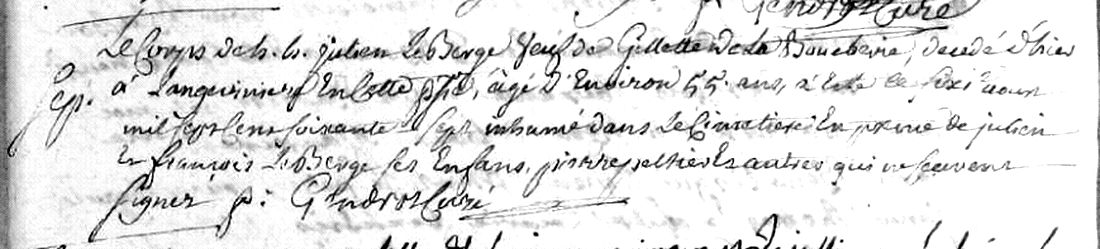 Gendrot Curé
Le Corps de h. h. julien Le Berge veuf de Gillette de La Boucherie, decedé d'hier
Sep. à En Cette psse, agé d'Environ 55. ans, a Eté le aoust
mil sept Cens soixante sept inhumé dans Le Cimetiere En psence de julien
Et françois Le Berge ses Enfans, pierre peltier Et autres qui ne scavent
signer p: Gendrot Curé